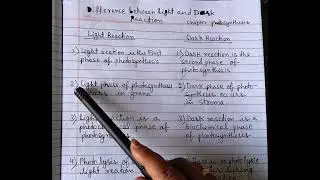 Difference between Light and Dark
Reaction chapter photosynthesis
Light Reaction Dark Reaction
1) Light reaction is the first 1) Dark reaction is the
phase of photosynthesis second phase of
photosynthesis
2) Light phase of photosynthesis 2) Dark phase of photo-
occurs in grana synthesis occurs in
stroma
3) Light reaction is a 3) Dark reaction is a
phase of biochemical phase
photosynthesis of photosynthesis
4) Photolysis of 4) photolysis
light reaction during